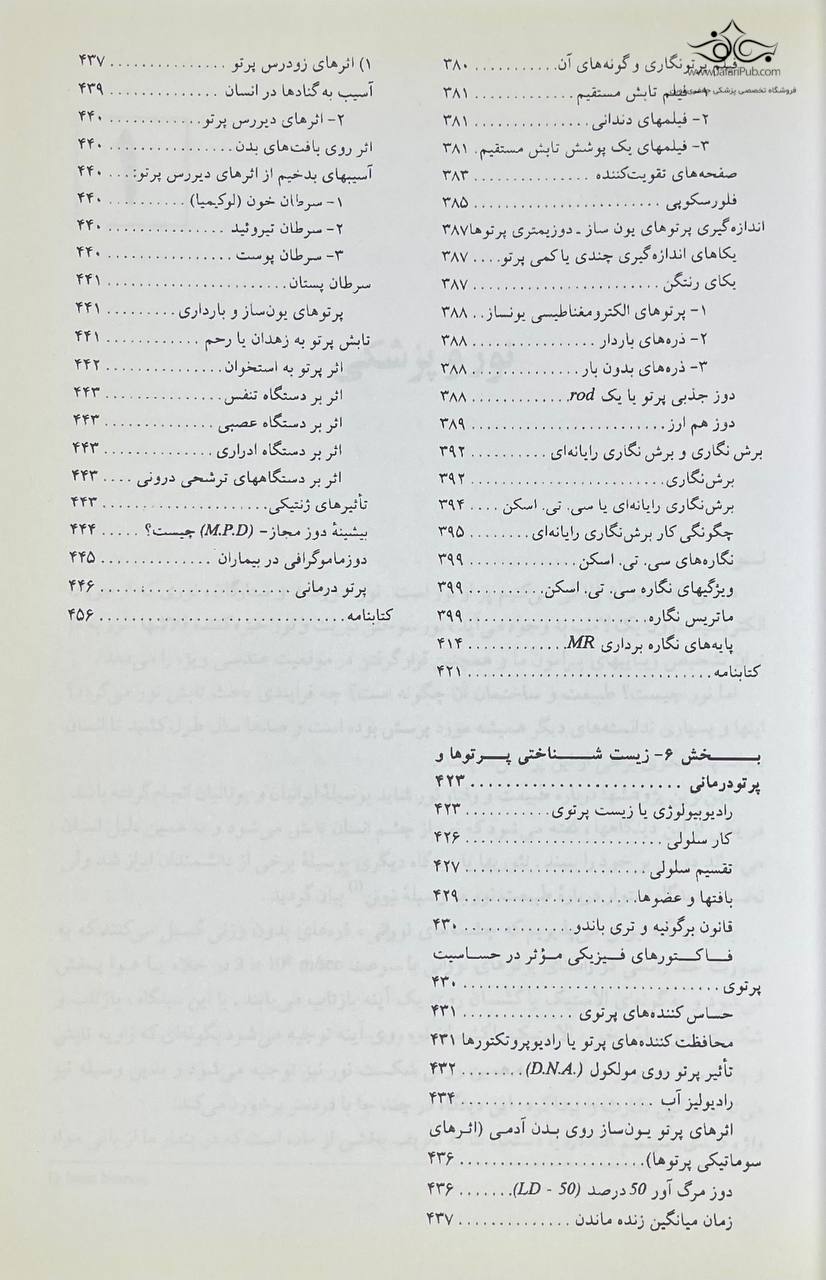 www.JafariPub.com
فروشگاه تخصصی پزشکی جعفری نوین
فیلم پرتونگاری و گونه‌های آن........... ۳۸۰
۱- فیلم تابش مستقیم................ ۳۸۱
۲- فیلمهای دندانی................... ۳۸۱
۳- فیلمهای یک پوشش تابش مستقیم. ۳۸۱
صفحه‌های تقویت‌کننده ............... ۳۸۳
فلورسکوپی ........................ ۳۸۵
اندازه‌گیری پرتوهای یون ساز ـ دوزیمتری پرتوها ۳۸۷
یکاهای اندازه‌گیری چندی یا کمی پرتو.... ۳۸۷
یکای رنتگن ........................ ۳۸۷
۱- پرتوهای الکترومغناطیسی یونساز.. ۳۸۸
۲- ذره‌های باردار .................. ۳۸۸
۳- ذره‌های بدون بار................. ۳۸۸
دوز جذبی پرتو یا یک rod............. ۳۸۸
دوز هم ارز......................... ۳۸۹
برش نگاری و برش نگاری رایانه‌ای .......... ۳۹۲
برش‌نگاری......................... ۳۹۲
برش‌نگاری رایانه‌ای یا سی. تی. اسکن .... ۳۹۴
چگونگی کار برش‌نگاری رایانه‌ای ........ ۳۹۵
نگاره‌های سی. تی. اسکن.............. ۳۹۹
ویژگیهای نگاره سی. تی. اسکن.......... ۳۹۹
ماتریس نگاره....................... ۳۹۹
پایه‌های نگاره برداری MR............. ۴۱۴
کتابنامه............................... ۴۲۱
بـــــخش ۶- زیست شـــــناختی پـــرتوها و
پرتودرمانی ........................ ۴۲۳
رادیوبیولوژی یا زیست پرتوی ........... ۴۲۳
کار سلولی ........................ ۴۲۶
تقسیم سلولی ...................... ۴۲۷
بافتها و عضوها..................... ۴۲۹
قانون برگونیه و تری باندو............. ۴۳۰
فـــاکـــتورهای فـــیزیکی مـــؤثر در حسـاسیت
پرتوی ............................. ۴۳۰
حساس کننده‌های پرتوی .............. ۴۳۱
محافظت کننده‌های پرتو یا رادیوپروتکتورها ۴۳۱
تأثیر پرتو روی مولکول (.D.N.A) ........ ۴۳۲
رادیولیز آب ....................... ۴۳۴
اثرهای پرتو یـون‌ساز روی بـدن آدمـی (اثـرهای
سوماتیکی پرتوها)..................... ۴۳۶
دوز مرگ آور 50 درصد (LD - 50)....... ۴۳۶
زمان میانگین زنده ماندن .............. ۴۳۷
۱) اثرهای زودرس پرتو ............... ۴۳۷
آسیب به گنادها در انسان .............. ۴۳۹
۲- اثرهای دیررس پرتو............. ۴۴۰
اثر روی بافت‌های بدن................ ۴۴۰
آسیبهای بدخیم از اثرهای دیررس پرتو:.... ۴۴۰
۱- سرطان خون (لوکیمیا) ........... ۴۴۰
۲- سرطان تیروئید ................. ۴۴۰
۳- سرطان پوست ................. ۴۴۰
سرطان پستان....................... ۴۴۱
پرتوهای یون‌ساز و بارداری .......... ۴۴۱
تابش پرتو به زهدان یا رحم ............ ۴۴۱
اثر پرتو به استخوان ............... ۴۴۲
اثر بر دستگاه تنفس............... ۴۴۳
اثر بر دستگاه عصبی .............. ۴۴۳
اثر بر دستگاه ادراری .............. ۴۴۳
اثر بر دستگاههای ترشحی درونی .... ۴۴۳
تأثیرهای ژنتیکی..................... ۴۴۳
بیشینهٔ دوز مجاز- (M.P.D) چیست؟ ..... ۴۴۴
دوزماموگرافی در بیماران ............. ۴۴۵
پرتو درمانی ........................ ۴۴۶
کتابنامه................................ ۴۵۶